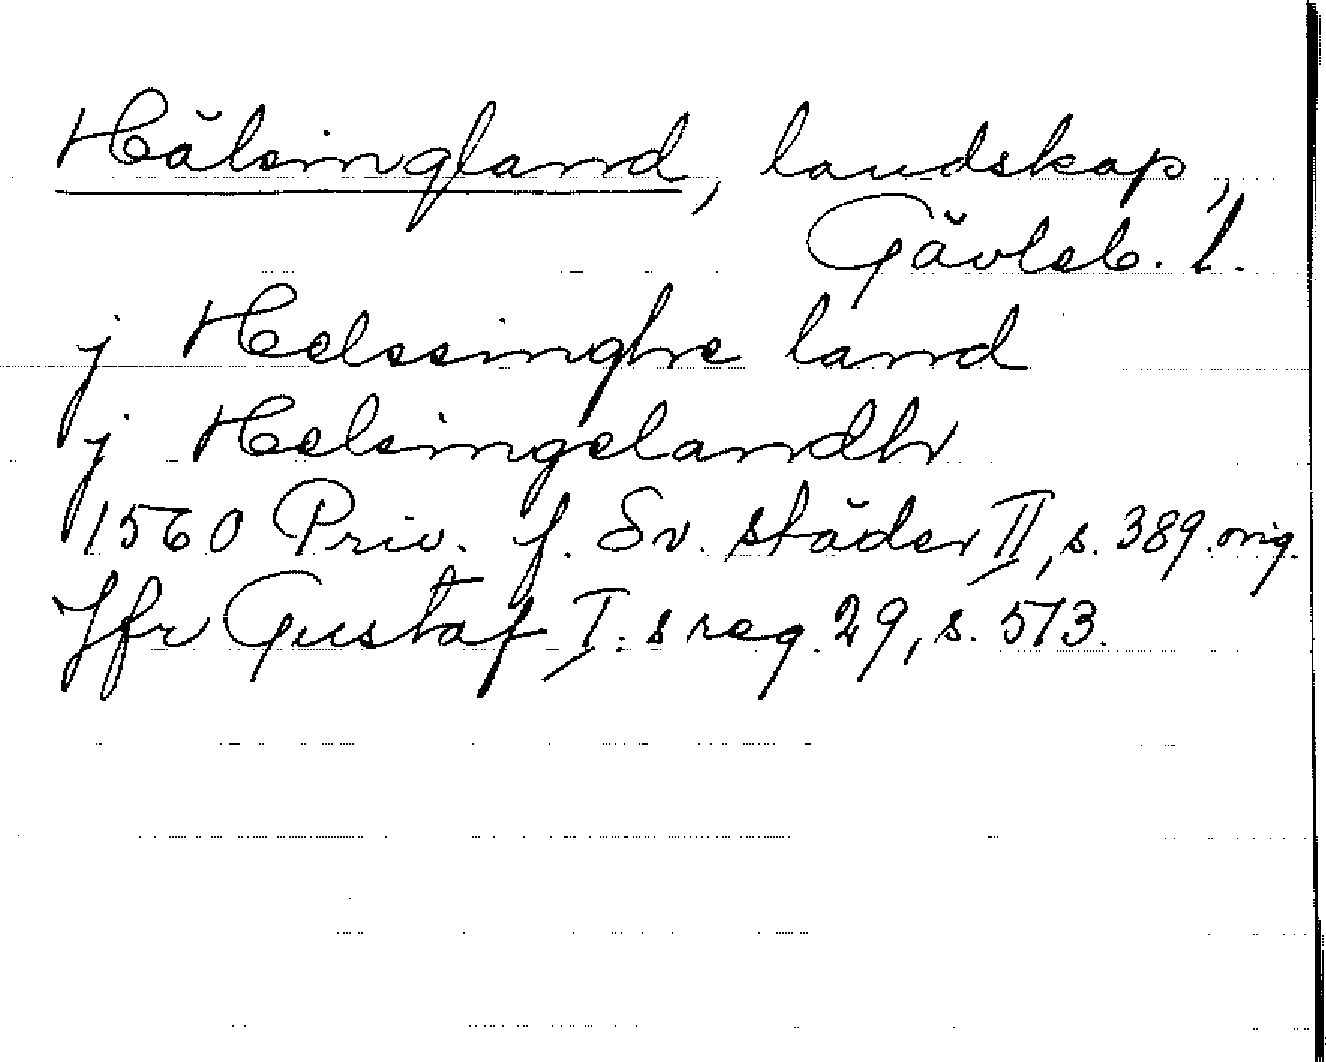 Hälsingland, landskap,
Gävleb. l.
j Helssinghe land
j Helsingelandh
1560 Priv. f. Sv. städer II, s. 389. orig.
Jfr Gustaf I:s reg. 29, s. 513.